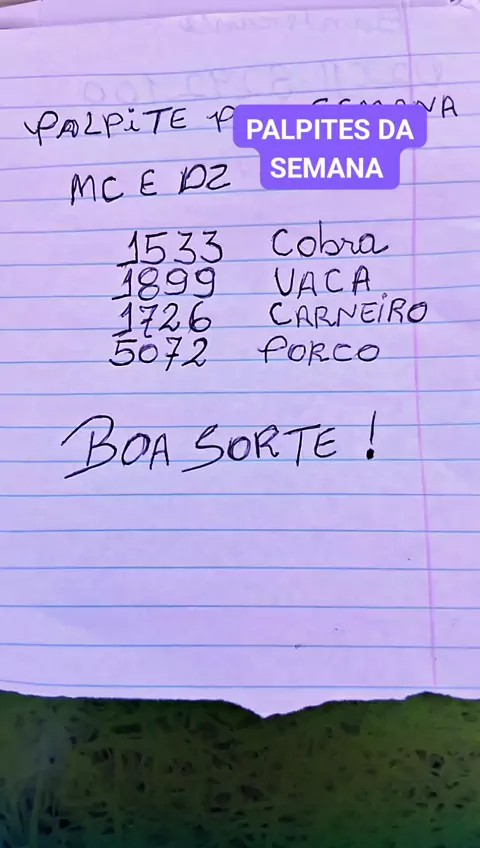 PALPITE P SEMANA
PALPITES DA
SEMANA
MC E DZ
1533 Cobra
1899 VACA
1726 CARNEIRO
5072 PORCO
BOA SORTE!